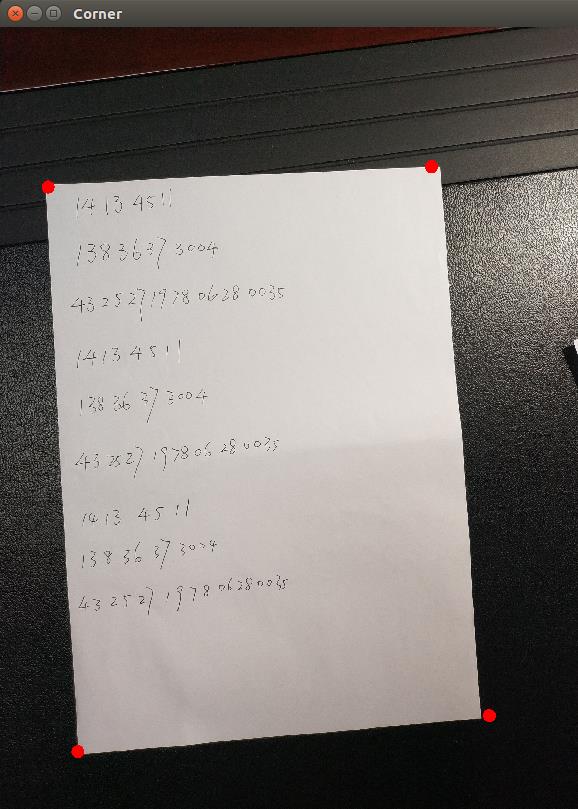 Corner
1413 4511
138 36 37 3004
43 25 27 1978 06 28 0035
1413 4511
138 36 37 3004
43 25 27 1978 06 28 0035
1413 4511
138 36 37 3004
43 25 27 1978 06 28 0035